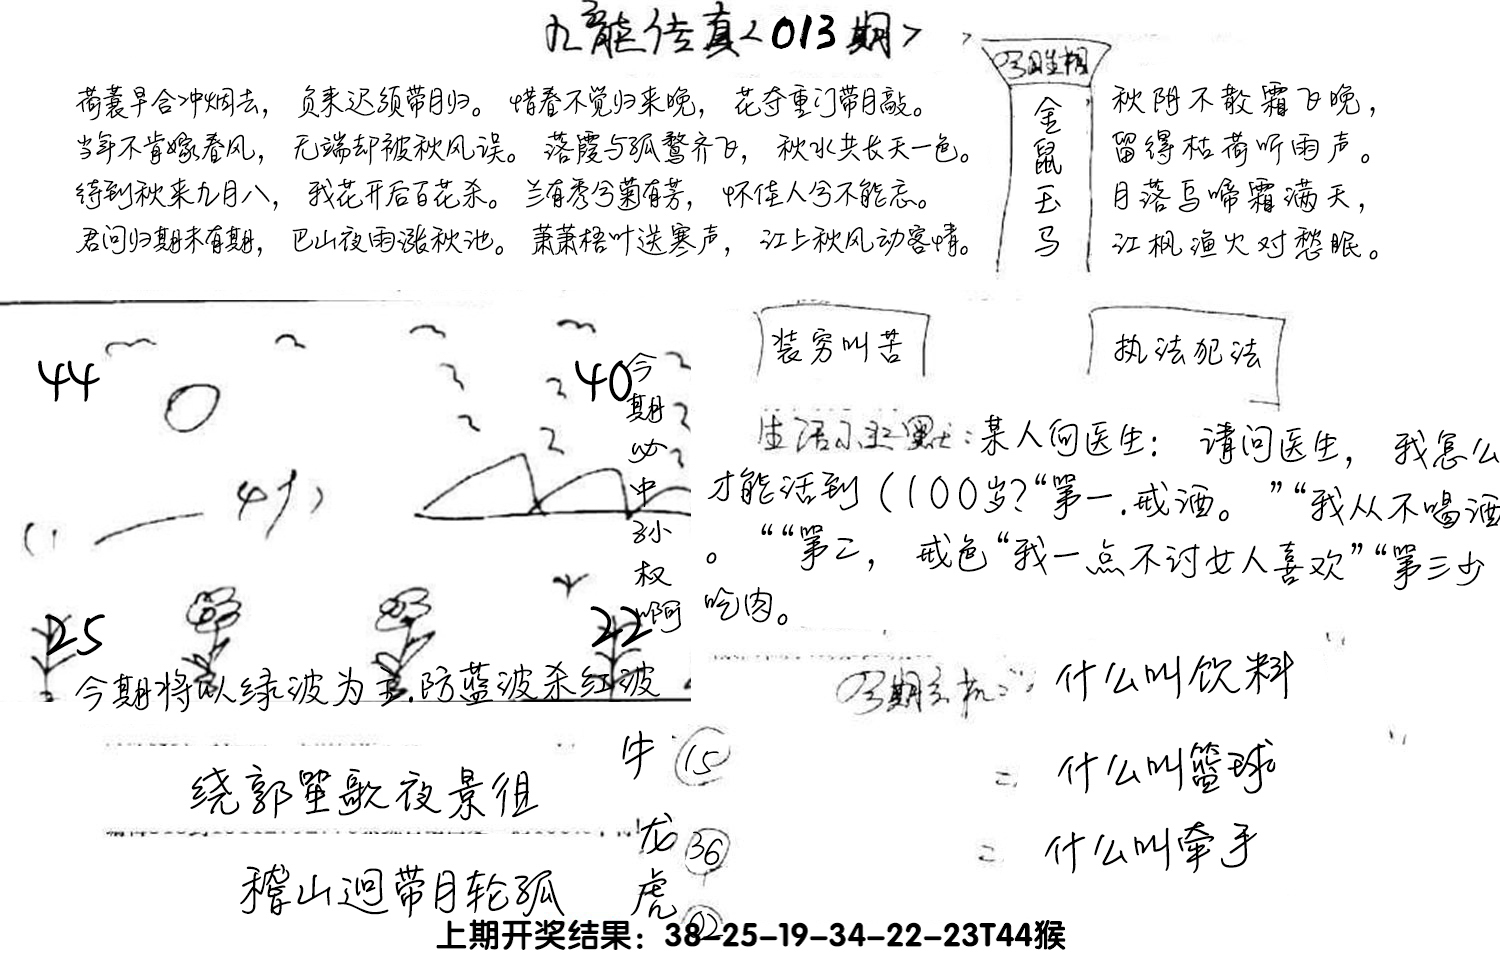 九龙传真<013期>
荷蓑早合冲烟去，负耒迟须带月归。惜春不觉归来晚，花夺重门带月敲。
当年不肯嫁春风，无端却被秋风误。落霞与孤鹜齐飞，秋水共长天一色。
待到秋来九月八，我花开后百花杀。兰有秀兮菊有芳，怀佳人兮不能忘。
君问归期未有期，巴山夜雨涨秋池。萧萧梧叶送寒声，江上秋风动客情。
金
鼠
玉
马
秋阴不散霜飞晚，
留得枯荷听雨声。
月落乌啼霜满天，
江枫渔火对愁眠。
44
40
25
22
今
期
必
中
孙
权
啊
今期将以绿波为主.防蓝波杀红波
装穷叫苦
执法犯法
生活小幽默:某人问医生：请问医生，我怎么
才能活到（100岁?“第一.戒酒。”“我从不喝酒
。““第二，戒色“我一点不讨女人喜欢”“第三少
吃肉。
什么叫饮料
=什么叫篮球
=什么叫牵手
绕郭笙歌夜景徂
稽山迥带月轮孤
牛 15
龙 36
虎 02
上期开奖结果：38-25-19-34-22-23T44猴